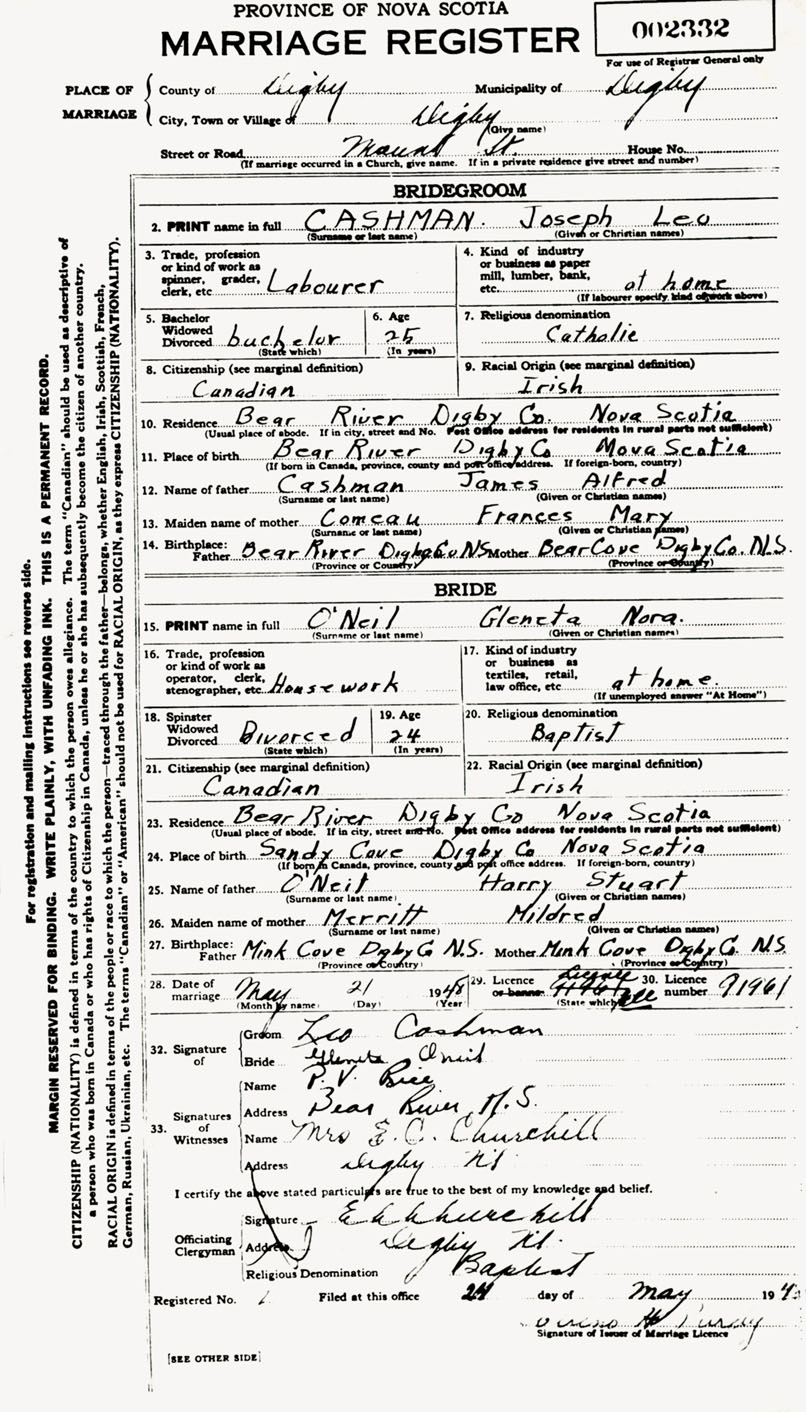 PROVINCE OF NOVA SCOTIA
MARRIAGE REGISTER
002332
For use of Registrar General only
PLACE OF MARRIAGE
County of Digby Municipality of Digby
City, Town or Village of Digby
(Give name)
Street or Road St. House No.
(If marriage occurred in a Church, give name. If in a private residence give street and number)
BRIDEGROOM
2. PRINT name in full CASHMAN. Joseph Leo
(Surname or last name) (Given or Christian names)
3. Trade, profession or kind of work as spinner, grader, clerk, etc Labourer
4. Kind of industry or business as paper mill, lumber, bank, etc. at home
(If labourer specify kind of work above)
5. Bachelor Widowed Divorced bachelor
(State which)
6. Age 25
(In years)
7. Religious denomination
Catholic
8. Citizenship (see marginal definition)
Canadian
9. Racial Origin (see marginal definition)
Irish
10. Residence Bear River Digby Co. Nova Scotia
(Usual place of abode. If in city, street and No. Post Office address for residents in rural parts not sufficient)
11. Place of birth Bear River Digby Co Nova Scotia
(If born in Canada, province, county and post office address. If foreign-born, country)
12. Name of father Cashman James Alfred
(Surname or last name) (Given or Christian names)
13. Maiden name of mother Comeau Frances Mary
(Surname or last name) (Given or Christian names)
14. Birthplace: Father Bear River Digby Co NS Mother Bear Cove Digby Co. N.S.
(Province or Country) (Province or Country)
BRIDE
15. PRINT name in full O'Neil Gleneta Nora.
(Surname or last name) (Given or Christian names)
16. Trade, profession or kind of work as operator, clerk, stenographer, etc. House work
17. Kind of industry or business as textiles, retail, law office, etc at home.
(If unemployed answer "At Home")
18. Spinster Widowed Divorced Divorced
(State which)
19. Age 24
(In years)
20. Religious denomination
Baptist
21. Citizenship (see marginal definition)
Canadian
22. Racial Origin (see marginal definition)
Irish
23. Residence Bear River Digby Co Nova Scotia
(Usual place of abode. If in city, street and No. Post Office address for residents in rural parts not sufficient)
24. Place of birth Sandy Cove Digby Co Nova Scotia
(If born in Canada, province, county and post office address. If foreign-born, country)
25. Name of father O'Neil Harry Stuart
(Surname or last name) (Given or Christian names)
26. Maiden name of mother Merritt Mildred
(Surname or last name) (Given or Christian names)
27. Birthplace: Father Mink Cove Digby Co N.S. Mother Mink Cove Digby Co. N.S
(Province or Country) (Province or Country)
28. Date of marriage May 21 1948
(Month by name) (Day) (Year)
29. Licence or banns
(State which)
30. Licence number 91961
32. Signature of
Groom Leo Cashman
Bride Gleneta Oneil
33. Signatures of Witnesses
Name P. V. Rice
Address Bear River, N.S.
Name Mrs E. C. Churchill
Address Digby NS
I certify the above stated particulars are true to the best of my knowledge and belief.
Officiating Clergyman
Signature Churchill
Address Digby NS.
Religious Denomination Baptist
Registered No. Filed at this office 24 day of May 194
H Purdy
Signature of Issuer of Marriage Licence
[SEE OTHER SIDE]
For registration and mailing instructions see reverse side.
MARGIN RESERVED FOR BINDING. WRITE PLAINLY, WITH UNFADING INK. THIS IS A PERMANENT RECORD.
CITIZENSHIP (NATIONALITY) is defined in terms of the country to which the person owes allegiance. The term "Canadian" should be used as descriptive of
a person who was born in Canada or who has rights of Citizenship in Canada, unless he or she has subsequently become the citizen of another country.
RACIAL ORIGIN is defined in terms of the people or race to which the person—traced through the father—belongs, whether English, Irish, Scottish, French,
German, Russian, Ukrainian, etc. The terms "Canadian" or "American" should not be used for RACIAL ORIGIN, as they express CITIZENSHIP (NATIONALITY).